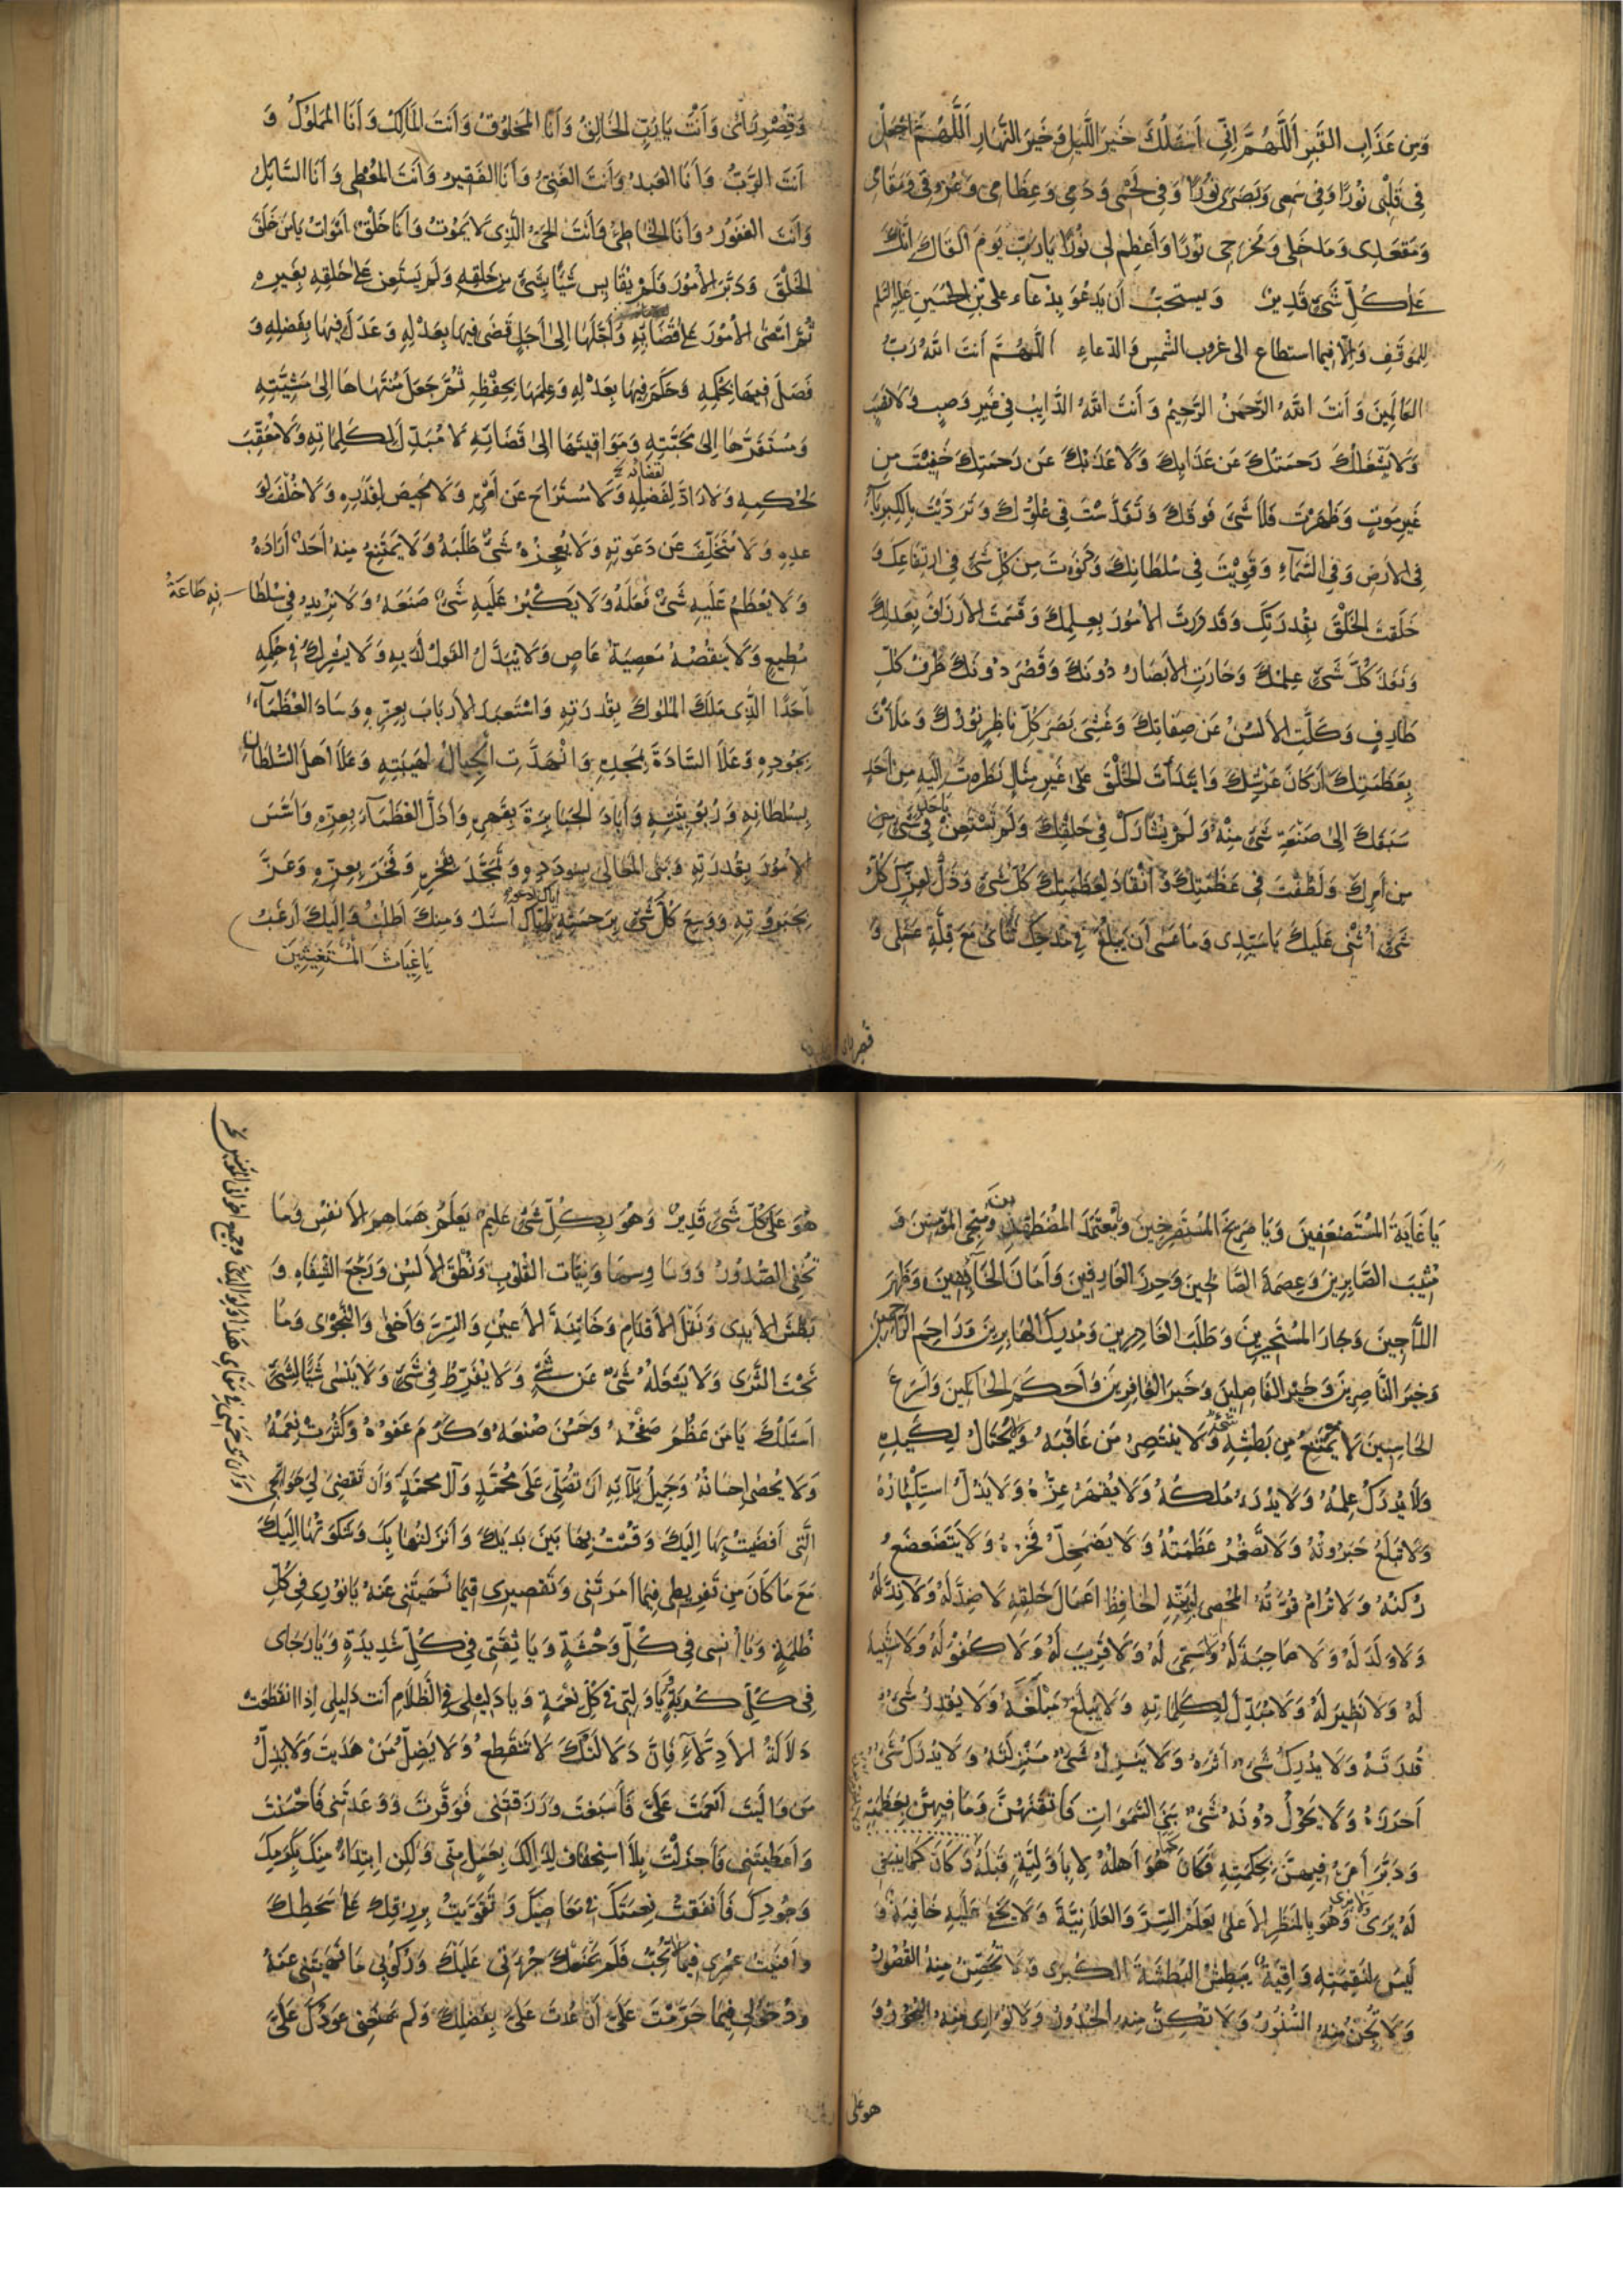 وَمِن عَذَابِ القَبرِ اَللَّهُمَّ اِنّى اَسئَلُكَ خَيرَ اللَّيلِ وَخَيرَ النَّهارِ اَللَّهُمَّ اجعَلْ
فِى قَلبِى نُورًا وَفِى سَمعِى وَبَصَرِى نُورًا وَفِى لَحْمِى وَدَمِى وَعِظَامِى وَعُرُوقِى وَمَقَامِى
وَمَقعَدِى وَمَدخَلِى وَمَخرَجِى نُورًا وَأعظِم لِى نُورًا يَارَبِّ يَومَ اَلقَاكَ اِنَّكَ
عَلىٰ كُلِّ شَىءٍ قَدِيرٌ وَيستحبّ أن يَدعُوَ بِدُعَاء على بْنِ الحُسَينِ عَليهِ السّلم
لِلمَوقِفِ وَالّا فيما استطاع الى غروب الشّمسِ وَالدّعاءِ اللَّهُمَّ أنتَ اللهُ رَبُّ
العَالَمِينَ وَ أنتَ اللهُ الرَّحمٰنُ الرَّحِيمُ وَ أنتَ اللهُ الدَّايِبُ فِى غَيرِ وَصبٍ وَلَا نَصَبٍ
وَلَا يَشْغَلُكَ رَحمَتُكَ عَن عَذَابِكَ وَلَا عَذَابُكَ عَن رَحمَتِكَ خَفِيْتَ مِن
غَيرِ مَوتٍ وَظَهَرتَ فَلَا شَىءَ فَوقَكَ وَ تَقَدَّسْتَ فِى عُلُوِّكَ وَتَرَدَّيْتَ بِالكِبرِيَآءِ
فِى الأرضِ وَفِى السَّمَآءِ وَقَوِيْتَ فِى سُلطَانِكَ وَدَنَوتَ مِن كُلِّ شَىءٍ فِى ارتِفَاعِكَ وَ
خَلَقتَ الخَلْقَ بِقُدرَتِكَ وَقَدَّرتَ الأمُورَ بِعِلمِكَ وَقَسَمتَ الأرزَاقَ بِعَدلِكَ
وَنَفَذَ كُلَّ شَىءٍ عِلمُكَ وَحَارَتِ الأبصَارُ دُونَكَ وَقَصُرَ دُونَكَ طَرْفُ كُلِّ
طَارِفٍ وَكَلَّتِ الألسُنُ عَن صِفَاتِكَ وَغَشِىَ بَصَرَ كُلِّ نَاظِرٍ نُورُكَ وَمَلَأتَ
بِعَظَمَتِكَ أركَانَ عَرْشِكَ وَابتَدَأتَ الخَلْقَ عَلىٰ غَيرِ مِثَالٍ نَظَرتَ اِلَيهِ مِن اَحَدٍ
سَبَقَكَ اِلىٰ صَنعَةِ شَىءٍ مِنهُ وَلَم يُشَارَكْ فِى خَلقِكَ وَلَم تَستَعِن بِأحَدٍ فِى شَىءٍ مِن
مِن أمرِكَ وَلَطُفْتَ فِى عَظَمَتِكَ وَانقَادَ لِعَظَمَتِكَ كُلُّ شَىءٍ وَذَلَّ لِعِزِّكَ كُلُّ
شَىءٍ اُثْنِى عَلَيكَ يَا سَيِّدِى وَمَا عَسىٰ أن يَبلُغَ فِى مَدحِكَ ثَنَائِى مَعَ قِلَّةِ عَمَلِى وَ
وَقِصَرِ رَأيِى وَ أَنْتَ يَا رَبِّ الخَالِقُ وَ أنَا المَخلُوقُ وَ أنتَ المَالِكُ وَ أنَا المَملُوكُ وَ
أنتَ الرَّبُّ وَ أنَا العَبدُ وَ أنتَ الغَنِىُّ وَ أنَا الفَقِيرُ وَ أنتَ المُعطِى وَ أنَا السَّائِلُ
وَأنتَ الغَفُورُ وَ أنَا الخَاطِئُ وَ أنتَ الحَىُّ الَّذِى لَا يَمُوتُ وَ أنَا خَلْقٌ اَمُوتُ يَا مَن خَلَقَ
الخَلْقَ وَدَبَّرَ الأمُورَ فَلَم يُقَايِس شَيئًا بِشَىءٍ مِن خَلقِهِ وَلَم يَستَعِن عَلىٰ خَلقِهِ بِغَيرِهِ
ثُمَّ اَمضَى الأمُورَ عَلىٰ قَضَائِهِ وَأجَّلَهَا اِلىٰ اَجَلٍ قَضىٰ فِيهَا بِعَدْلِهِ وَعَدَلَ فِيهَا بِفَضلِهِ وَ
فَصَلَ فِيهَا بِحُكمِهِ وَحَكَمَ فِيهَا بِعَدْلِهِ وَعَلِمَهَا بِحِفْظِهِ ثُمَّ جَعَلَ مُنتَهَاهَا اِلىٰ مَشِيَّتِهِ
وَمُستَقَرَّهَا اِلىٰ مَحَبَّتِهِ وَمَوَاقِيتَهَا اِلىٰ قَضَائِهِ لَا مُبَدِّلَ لِكَلِمَاتِهِ وَلَا مُعَقِّبَ
لِحُكمِهِ وَلَا رَادَّ لِفَضلِهِ لقضائه وَلَا مُستَرَاحَ عَن أمرِهِ وَلَا مَحِيصَ لِقَدَرِهِ وَلَا خُلْفَ لِوَ
عدِهِ وَلَا مُتَخَلِّفَ عَن دَعوَتِهِ وَلَا يُعجِزُهُ شَىءٌ طَلَبَهُ وَلَا يَمتَنِعُ مِنهُ اَحَدٌ اَرَادَهُ
وَلَا يَعْظُمُ عَلَيهِ شَىءٌ فَعَلَهُ وَلَا يَكبُرُ عَلَيهِ شَىءٌ صَنَعَهُ وَلَا يَزِيدُ فِى سُلْطَا نِهِ طَاعَةُ
مُطِيعٍ وَلَا يَنقُصُهُ مَعصِيَةُ عَاصٍ وَلَا يُبَدَّلُ القَولُ لَدَيهِ وَلَا يُشرِكُ فِى حُكمِهِ
اَحَدًا الَّذِى مَلَكَ المُلُوكَ بِقُدرَتِهِ وَاستَعبَدَ الأربَابَ بِعِزِّهِ وَسَادَ العُظَمَآءَ
بِجُودِهِ وَعَلَا السَّادَةَ بِمَجدِهِ وَانْهَدَّتِ الجِبَالُ لِهَيبَتِهِ وَعَلَا اَهلَ السُّلطَانِ
بِسُلطَانِهِ وَرُبُوبِيَّتِهِ وَأبَادَ الجَبَابِرَةَ بِقَهرِهِ وَأذَلَّ العُظَمَآءَ بِعِزِّهِ وَأسَّسَ
الأمُورَ بِقُدرَتِهِ وَبَنَى المَعَالِىَ بِسُودَدِهِ وَتَمَجَّدَ بِفَخرِهِ وَفَخَرَ بِعِزِّهِ وَعَزَّ
بِجَبَرُوتِهِ وَوَسِعَ كُلَّ شَىءٍ بِرَحمَتِهِ اِيَّاكَ اَسئَلُ وَمِنكَ اَطلُبُ وَاِلَيكَ اَرغَبُ
يَا غِيَاثَ المُستَغِيثِينَ
يَا غَايَةَ المُستَضعَفِينَ وَيَا صَرِيخَ المُستَصرِخِينَ وَمُعتَمَدَ المُضطَهَدِينَ وَمُنجِىَ المُؤمِنِينَ وَ
مُثِيبَ الصَّابِرِينَ وَعِصمَةَ الصَّالِحِينَ وَحِرزَ العَارِفِينَ وَأمَانَ الخَائِفِينَ وَظَهرَ
اللَّاجِينَ وَجَارَ المُستَجِيرِينَ وَطَلَبَ الغَادِرِينَ وَمُدرِكَ الهَارِبِينَ وَاَرحَمَ الرَّاحِمِينَ
وَخَيرَ النَّاصِرِينَ وَخَيرَ الفَاصِلِينَ وَخَيرَ الغَافِرِينَ وَأحكَمَ الحَاكِمِينَ وَأسرَعَ
الحَاسِبِينَ لَا يَمتَنِعُ مِن بَطشِهِ شَىءٌ وَلَا يَنتَصِرُ مَن عَاقَبَهُ وَلَا يُحتَالُ لِكَيدِهِ
وَلَا يُدرَكُ عِلمُهُ وَلَا يُدرَءُ مُلكُهُ وَلَا يُقهَرُ عِزُّهُ وَلَا يُذَلُّ استِكبَارُهُ
وَلَا يُبلَغُ جَبَرُوتُهُ وَلَا تَصغُرُ عَظَمَتُهُ وَلَا يَضمَحِلُّ فَخرُهُ وَلَا يَتَضَعضَعُ
رُكنُهُ وَلَا تُرَامُ قُوَّتُهُ المُحصِى لِبَرِيَّتِهِ الحَافِظُ اَعمَالَ خَلقِهِ لَا ضِدَّ لَهُ وَلَا نِدَّ لَهُ
وَلَا وَلَدَ لَهُ وَلَا صَاحِبَةَ لَهُ وَلَا سَمِىَّ لَهُ وَلَا قَرِيبَ لَهُ وَلَا كُفوَ لَهُ وَلَا شَبِيهَ
لَهُ وَلَا نَظِيرَ لَهُ وَلَا مُبَدِّلَ لِكَلِمَاتِهِ وَلَا يَبلُغُ مَبلَغَهُ وَلَا يَقدِرُ شَىءٌ
قُدرَتَهُ وَلَا يُدرِكُ شَىءٌ اَثَرَهُ وَلَا يَنزِلُ شَىءٌ مَنزِلَتَهُ وَلَا يُدرَكُ شَىءٌ
اَحرَزَهُ وَلَا يَحُولُ دُونَهُ شَىءٌ بَنَى السَّمَوَاتِ فَاَتقَنَهُنَّ وَمَا فِيهِنَّ بِعَظَمَتِهِ
وَدَبَّرَ أمرَهُ فِيهِنَّ بِحِكمَتِهِ فَكَانَ كَمَا هُوَ اَهلُهُ لَا بِأوَّلِيَّةٍ قَبلَهُ وَكَانَ كَمَا يَنبَغِى
لَهُ يَرىٰ وَلَا يُرىٰ وَهُوَ بِالمَنظَرِ الأعلىٰ يَعلَمُ السِّرَّ وَالعَلَانِيَةَ وَلَا يَخفىٰ عَلَيهِ خَافِيَةٌ وَ
لَيسَ لِنَقِمَتِهِ وَاقِيَةٌ يَبطِشُ البَطشَةَ الكُبرىٰ وَلَا تُحَصِّنُ مِنهُ القُصُورُ
وَلَا تُجِنُّ مِنهُ السُّتُورُ وَلَا تُكِنُّ مِنهُ الخُدُورُ وَلَا تُوَارِى مِنهُ البُحُورُ وَ
هو على
هُوَ عَلىٰ كُلِّ شَىءٍ قَدِيرٌ وَهُوَ بِكُلِّ شَىءٍ عَلِيمٌ يَعلَمُ هَمَاهِمَ الأنفُسِ وَمَا
تُخفِى الصُّدُورُ وَوَسَاوِسَهَا وَنِيَّاتِ القُلُوبِ وَنُطقَ الألسُنِ وَرَجْعَ الشِّفَاهِ وَ
بَطشَ الأيدِى وَنَقلَ الأقدَامِ وَخَائِنَةَ الأعيُنِ وَالسِّرَّ وَأخفىٰ وَالنَّجوىٰ وَمَا
تَحتَ الثَّرىٰ وَلَا يَشغَلُهُ شَىءٌ عَن شَىءٍ وَلَا يُفَرِّطُ فِى شَىءٍ وَلَا يَنسىٰ شَيئًا لِشَىءٍ
اَسئَلُكَ يَا مَن عَظُمَ صَفحُهُ وَحَسُنَ صُنعُهُ وَكَرُمَ عَفوُهُ وَكَثُرَت نِعَمُهُ
وَلَا يُحصىٰ اِحسَانُهُ وَجَمِيلُ بَلَآئِهِ اَن تُصَلِّىَ عَلىٰ مُحَمَّدٍ وَآلِ مُحَمَّدٍ وَأن تَقضِىَ لِى حَوَائِجِى
الَّتِى اَفضَيتُ بِهَا اِلَيكَ وَقُمتُ بِهَا بَينَ يَدَيكَ وَأنزَلتُهَا بِكَ وَشَكَوتُهَا اِلَيكَ
مَعَ مَا كَانَ مِن تَفرِيطِى فِيمَا اَمَرتَنِى وَتَقصِيرِى فِيمَا نَهَيتَنِى عَنهُ يَا نُورِى فِى كُلِّ
ظُلمَةٍ وَيَا اُنسِى فِى كُلِّ وَحشَةٍ وَيَا ثِقَتِى فِى كُلِّ شَدِيدَةٍ وَيَا رَجَاىَ
فِى كُلِّ كُربَةٍ وَيَا وَلِيِّى فِى كُلِّ نِعمَةٍ وَيَا دَلِيلِى فِى الظَّلَامِ أنتَ دَلِيلِى اِذَا انقَطَعَت
دَلَالَةُ الأدِلَّآءِ فَاِنَّ دَلَالَتَكَ لَا تَنقَطِعُ وَلَا يَضِلُّ مَن هَدَيتَ وَلَا يَذِلُّ
مَن وَالَيتَ اَنعَمتَ عَلَىَّ فَأسبَغتَ وَرَزَقتَنِى فَوَفَّرتَ وَوَعَدتَنِى فَاَحسَنتَ
وَأعطَيتَنِى فَأجزَلتَ بِلَا استِحقَاقٍ لِذٰلِكَ بِعَمَلٍ مِنِّى وَلٰكِن اِبتِدَاءً مِنكَ بِكَرَمِكَ
وَجُودِكَ فَأنفَقتُ نِعمَتَكَ فِى مَعَاصِيكَ وَتَقَوَّيتُ بِرِزقِكَ عَلىٰ سَخَطِكَ
وَأفنَيتُ عُمرِى فِيمَا لَا تُحِبُّ فَلَم تَمنَعكَ جُرأتِى عَلَيكَ وَرُكُوبِى مَا نَهَيتَنِى عَنهُ
وَدُخُولِى فِيمَا حَرَّمتَ عَلَىَّ اَن عُدتَ عَلَىَّ بِفَضلِكَ وَلَم يَمنَعنِى عَودُكَ عَلَىَّ